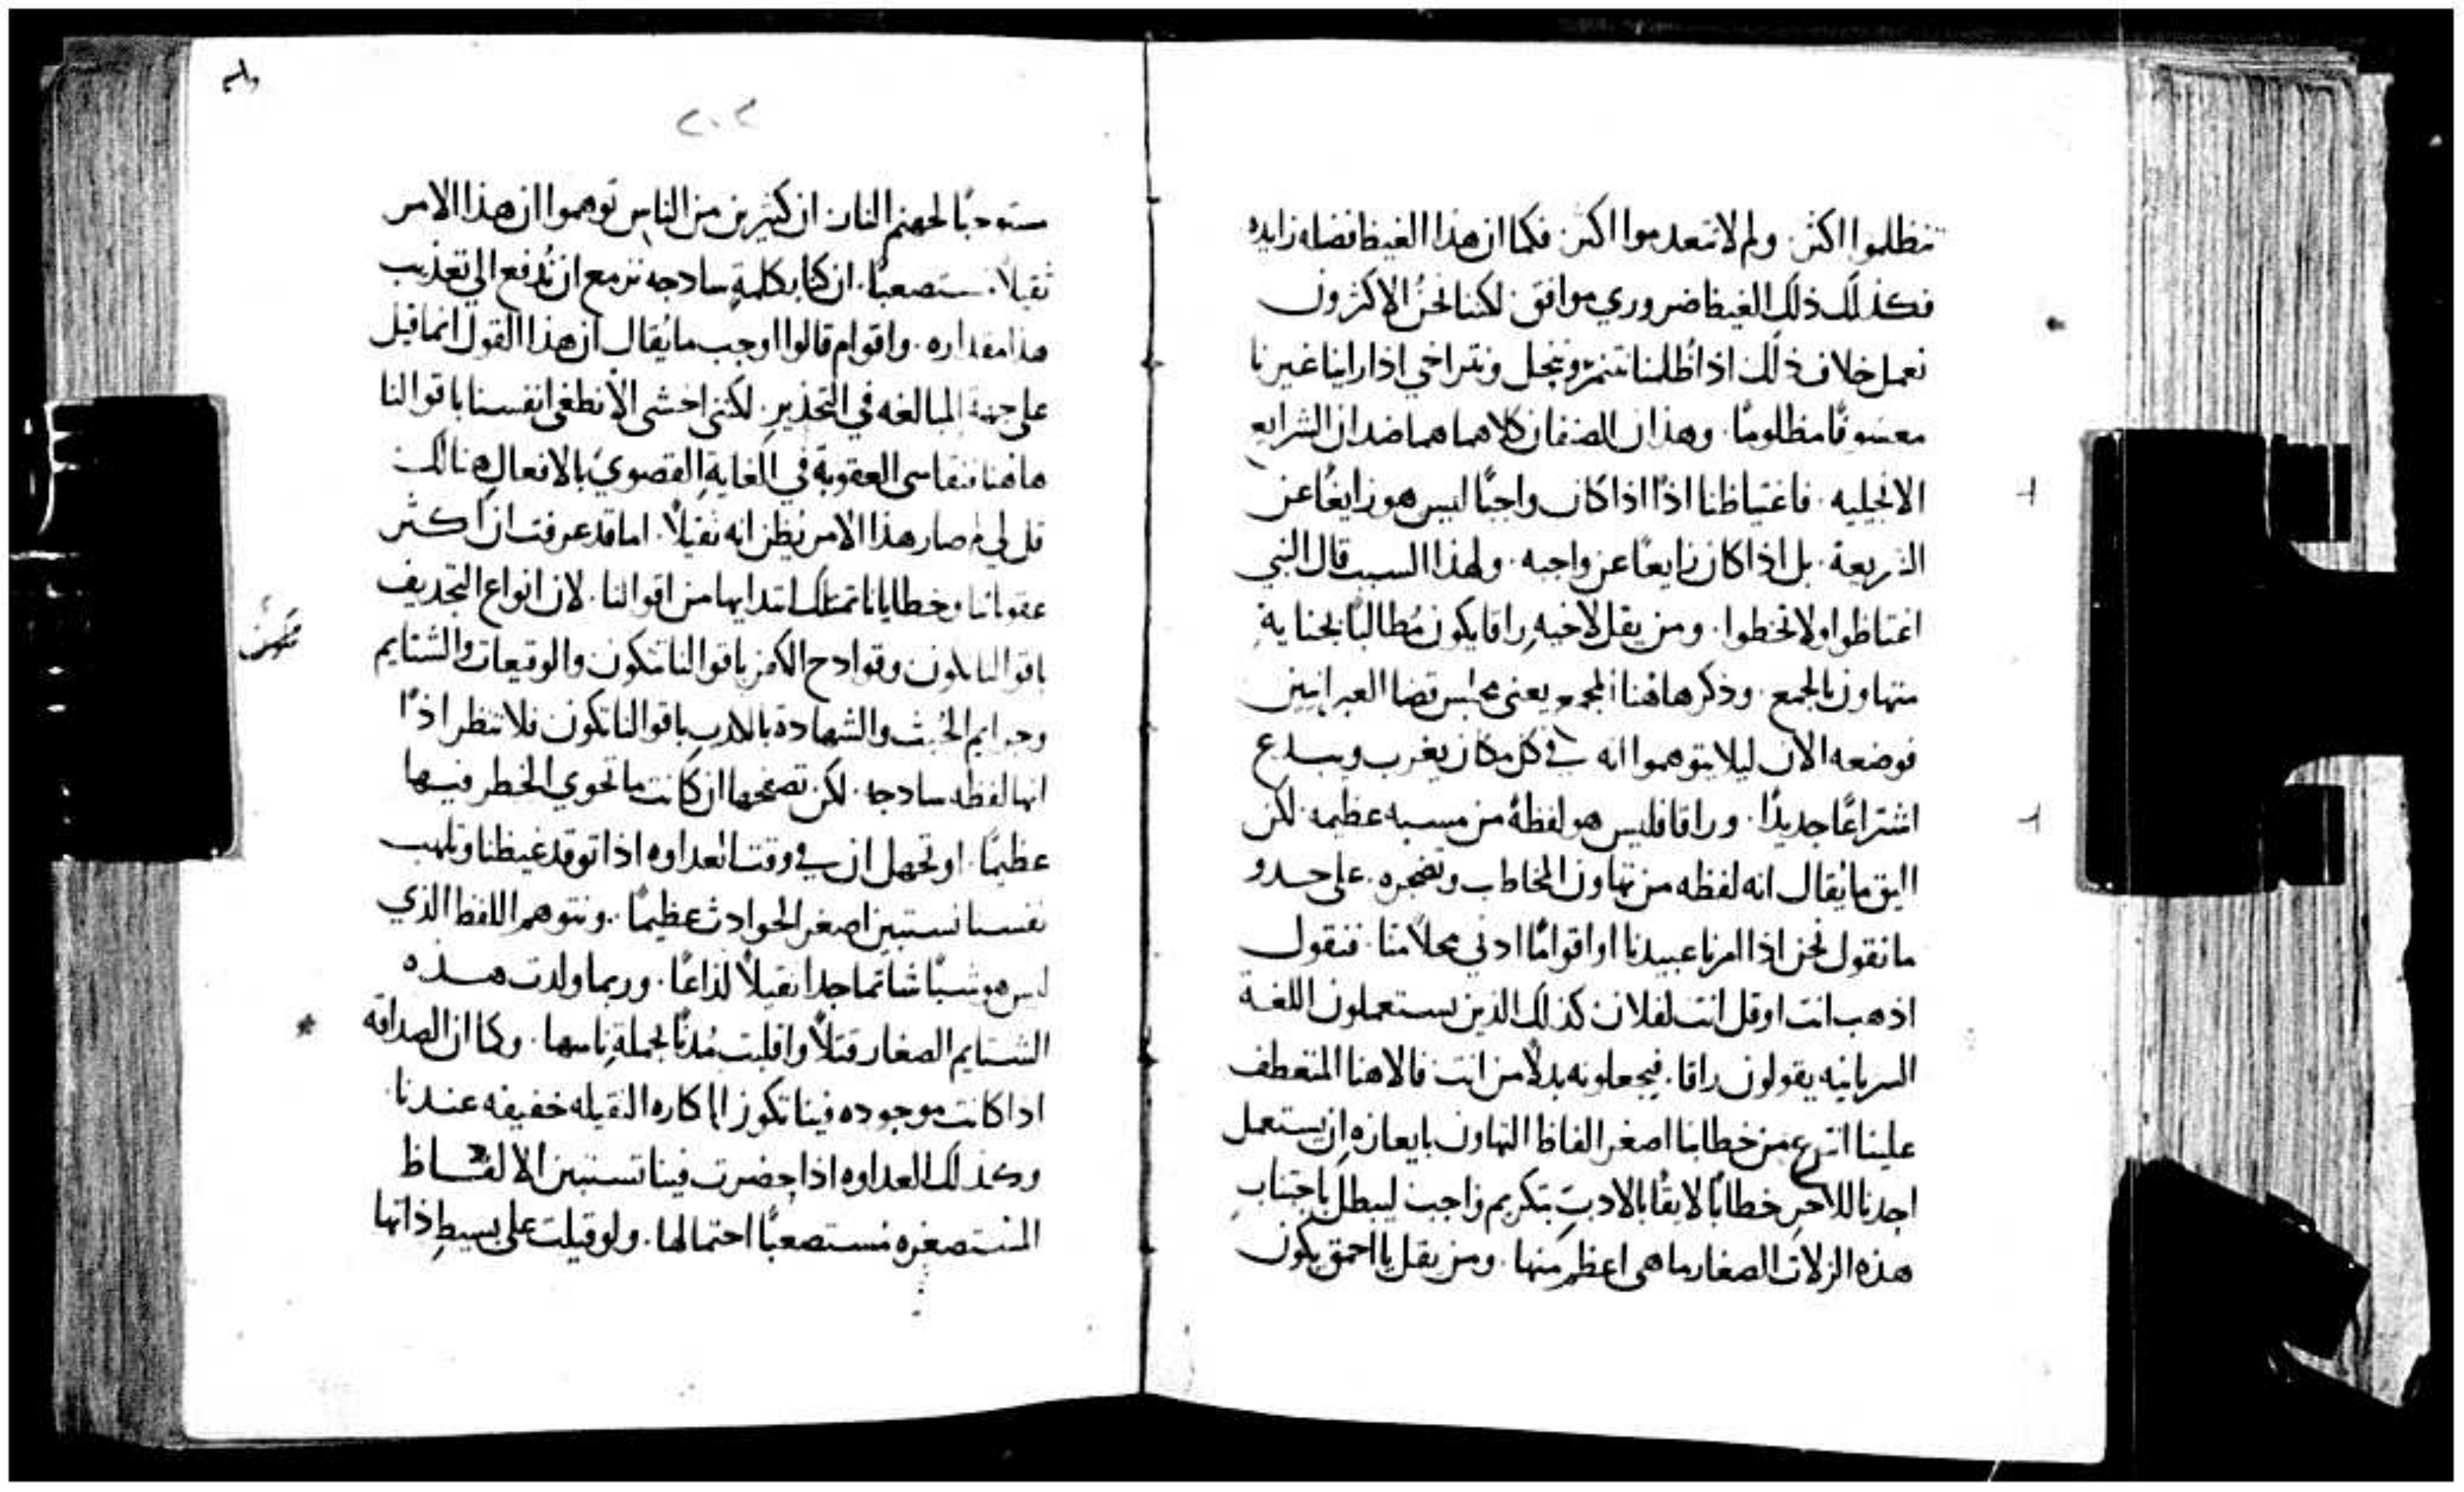 تتظلموا اكثر. ولم لا تعدموا اكثر. فكما ان هذا الغيظ فضله زايده
فكذلك ذلك الغيظ ضروري موافق. لكننا نحن الاكثرون
نعمل خلاف ذلك اذا ظُلمنا نتنمر ونبخل ونتراخي اذا راينا غيرنا
معسوفًا مظلومًا. وهذان الصنفان كلاهما هما ضدان الشرايع
الانجليه. فاغتياظنا اذًا اذا كان واجبًا ليس هو زايغًا عن
الشريعة. بل اذا كان زايغًا عن واجبه. ولهذا السبب قال النبي
اغتاظوا ولا تخطوا. ومن يقل لاخيه راقا يكون مُطالبًا بجناية
متهاون بالجمع. وذكر هاهنا المجمع يعني مجلس قضا العبرانيين
فوضعه الان ليلا يتوهموا انه في كل مكان يغرب ويبدع
اشتراعًا جديدًا. وراقا فليس هو لفظة من مسبه عظيمه. لكن
اليق ما يُقال انه لفظه من تهاون المخاطب وتضجره. على حدو
ما نقول نحن اذا امرنا عبيدنا او اقوامًا ادني محلاً منا. فنقول
اذهب انت او قل انت لفلان كذلك الذين يستعملون اللغة
السريانيه يقولون راقا. فيجعلونه بدلاً من انت فالاهنا المنعطف
علينا انتزع من خطابنا اصغر الفاظ التهاون بايعازه ان يستعمل
احدنا للاخر خطابًا لايقًا بالادب بتكريم واجب ليبطل باجتناب
هذه الزلات الصغار ما هي اعظم منها. ومن يقل يا احمق يكون
٢٠٢
مستوجبًا لجهنم النار. ان كثيرين من الناس توهموا ان هذا الامر
ثقيلاً مستصعبًا. ان كنا بكلمةٍ سادجه نزمع ان نُدفع الي تعذيب
هذا مقداره. واقوام قالوا اوجب ما يُقال ان هذا القول انما قيل
علي جهة المبالغه في التحذير. لكنني اخشي الا نطغي انفسنا باقوالنا
هاهنا فنقاسي العقوبة في الغاية القصوي بالافعال هنالك
قل لي لم صار هذا الامر يظن انه ثقيلاً. اما قد عرفت ان اكثر
عقوباتنا وخطايانا تمتلك ابتدايها من اقوالنا. لان انواع التجديف
باقوالنا تكون وقوادح الكفر باقوالنا تكون والوقيعات والشتايم
وجرايم الخُبث والشهادة بالكدب باقوالنا تكون فلا تنظر اذًا
انها لفظه سادجه. لكن تصفحها ان كانت ما تحوي الخطر فيها
عظيمًا. او تجهل ان في وقت العداوه اذا توقد غيظنا وتلهب
نفسنا نستبين اصغر الحوادث عظيمًا. ونتوهم اللفظ الذي
ليس هو شبًا شاتما جدا ثقيلاً لذاعًا. وربما ولدت هذه
الشتايم الصغار قتلاً واقلبت مُدنًا بجملةِ ناسها. وكما ان الصداقه
اذا كانت موجوده فينا تكون المكاره الثقيله خفيفه عندنا
وكذلك العداوه اذا حضرت فينا تستبين الالفاظ
المستصغره مستصعبًا احتمالها. ولو قيلت علي بسيط ذاتها